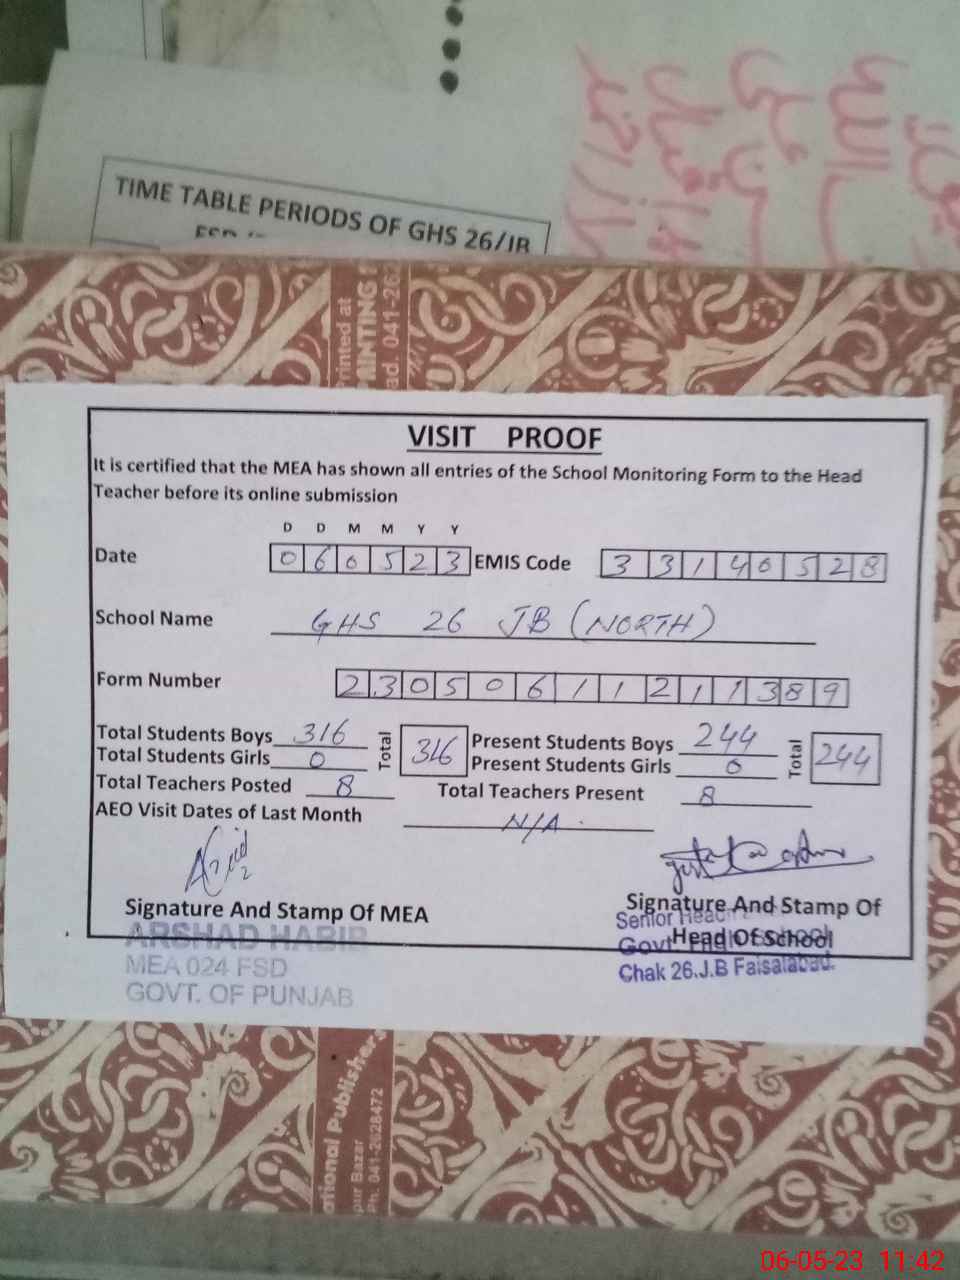 TIME TABLE PERIODS OF GHS 26/JB
Printed at
041-262
VISIT PROOF
It is certified that the MEA has shown all entries of the School Monitoring Form to the Head
Teacher before its online submission
D D M M Y Y
Date 0 6 0 5 2 3 EMIS Code 3 3 1 4 0 5 2 8
School Name GHS 26 JB (NORTH)
Form Number 2 3 0 5 0 6 1 1 2 1 1 3 8 9
Total Students Boys 316 Total 316 Present Students Boys 244 Total 244
Total Students Girls 0 Present Students Girls 0
Total Teachers Posted 8 Total Teachers Present 8
AEO Visit Dates of Last Month N/A
Signature And Stamp Of MEA
Signature And Stamp Of
Head Of School
ARSHAD HABIB
MEA 024 FSD
GOVT. OF PUNJAB
Senior Head
Govt High School
Chak 26.J.B Faisalabad.
ational Publishers
pur Bazar
Ph. 041-2628472
06-05-23 11:42